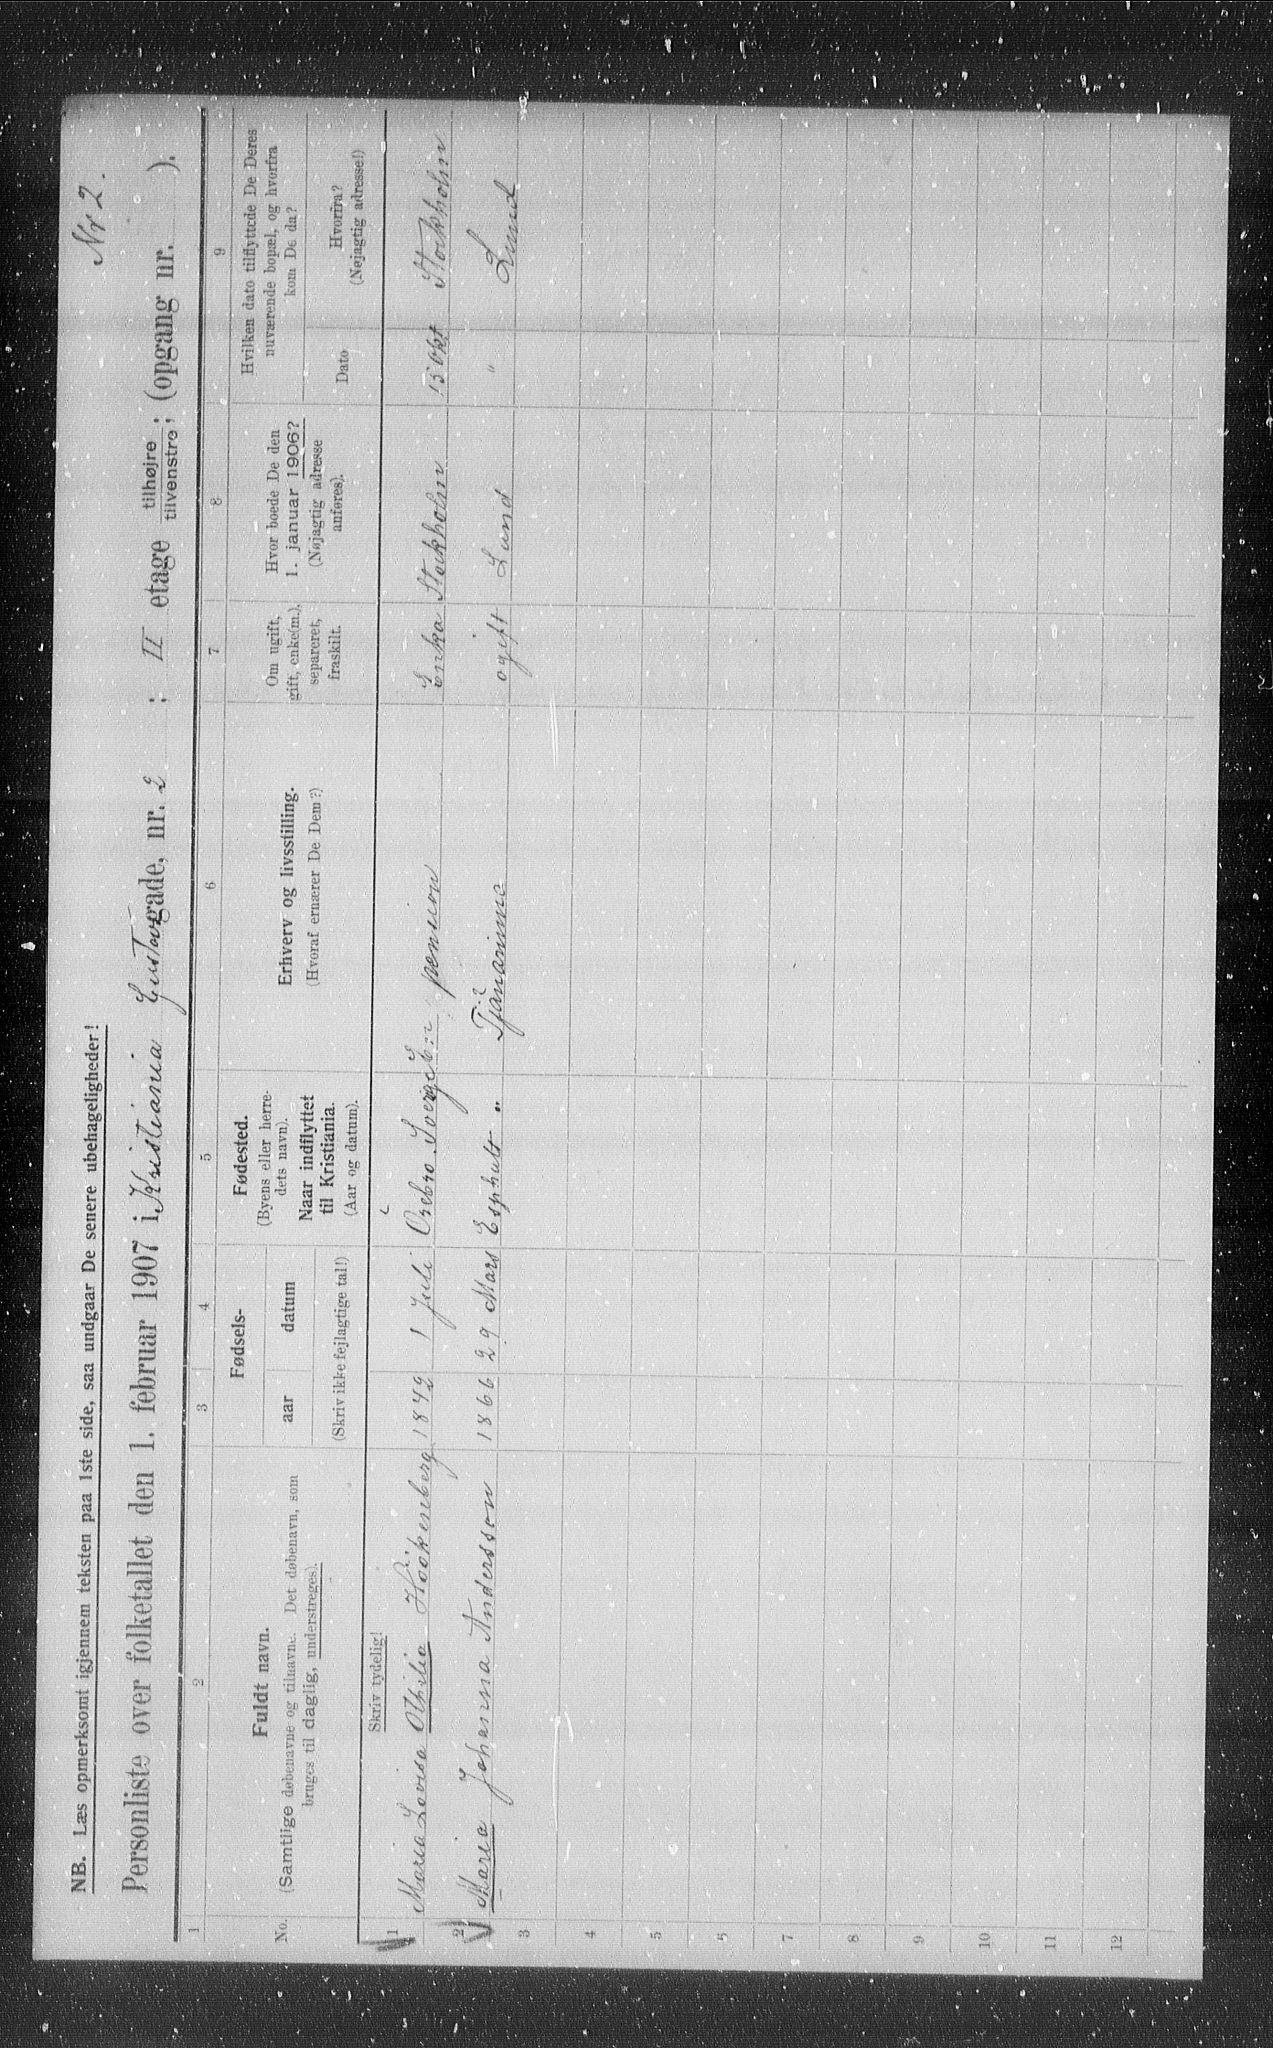 Nr 2.
NB. Læs opmerksomt igjennem teksten paa 1ste side, saa undgaar De senere ubehageligheder!
Personliste over folketallet den 1. februar 1907 i Kristiania Gustavsgade, nr. 2 ; II etage tilhøjre / tilvenstre; (opgang nr. ).
1 2 3 4 5 6 7 8 9
No.
Fuldt navn.
(Samtlige døbenavne og tilnavne. Det døbenavn, som
bruges til daglig, understreges).
Fødsels-
aar datum
(Skriv ikke fejlagtige tal!)
Fødested.
(Byens eller herre-
dets navn).
Naar indflyttet
til Kristiania.
(Aar og datum).
Erhverv og livsstilling.
(Hvoraf ernærer De Dem?)
Om ugift,
gift, enke(m.),
separeret,
fraskilt.
Hvor boede De den
1. januar 1906?
(Nøjagtig adresse
anføres).
Hvilken dato tilflyttede De Deres
nuværende bopæl, og hvorfra
kom De da?
Dato
Hvorfra?
(Nøjagtig adresse!)
Skriv tydelig!
1 Maria Lovisa Othilia Höökenberg 1842 1 Juli Örebro Sverge pension Enka Stockholm 15 Okt Stockholm
2 Maria Johanna Andersson 1866 29 Mars Esphult " Tjänarinna ogift Lund " Lund
3
4
5
6
7
8
9
10
11
12